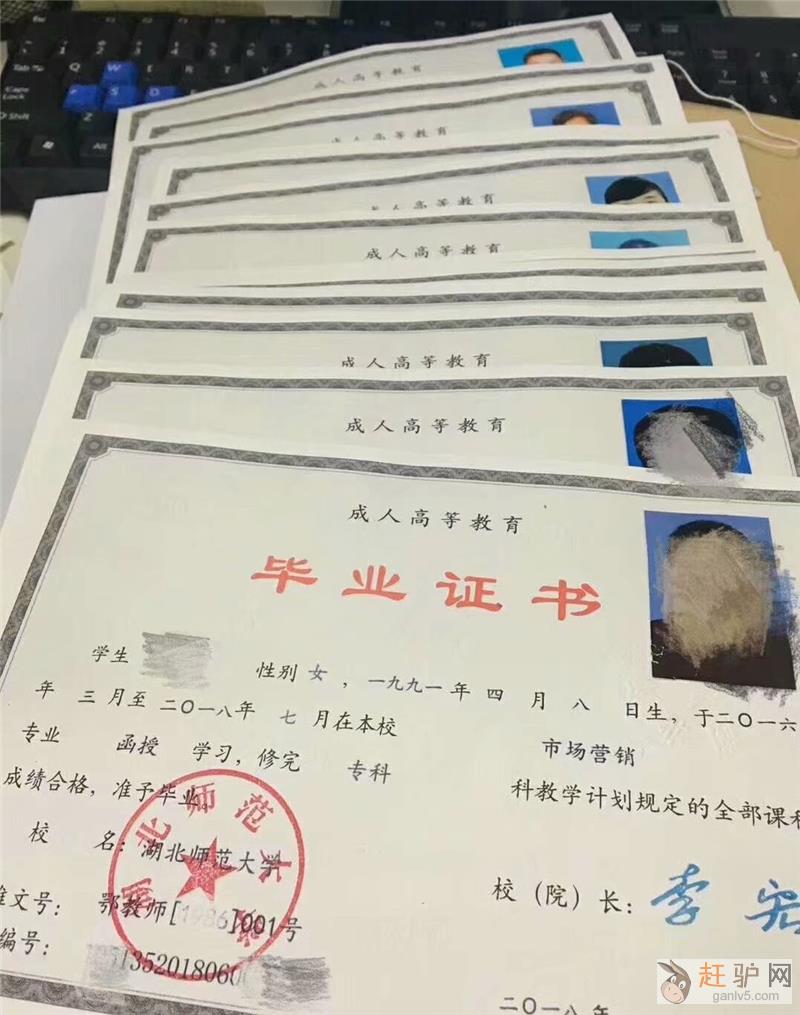 成人高等教育
成人高等教育
成人高等教育
成人高等教育
成人高等教育
成人高等教育
成人高等教育
毕业证书
学生 性别 女，一九九一年 四 月 八 日生，于二〇一六
年 三 月至 二〇一八年 七 月在本校 市场营销
专业 函授 学习，修完 专科 科教学计划规定的全部课程
成绩合格，准予毕业
校 名：湖北师范大学
校（院）长：
文号：鄂教师[1986]001号
编号：13520180600
二〇一八年
Tab
Q
W
E
R
T
Caps Lock
S
D
Shift
Z
Alt
赶驴网
ganlv5.com